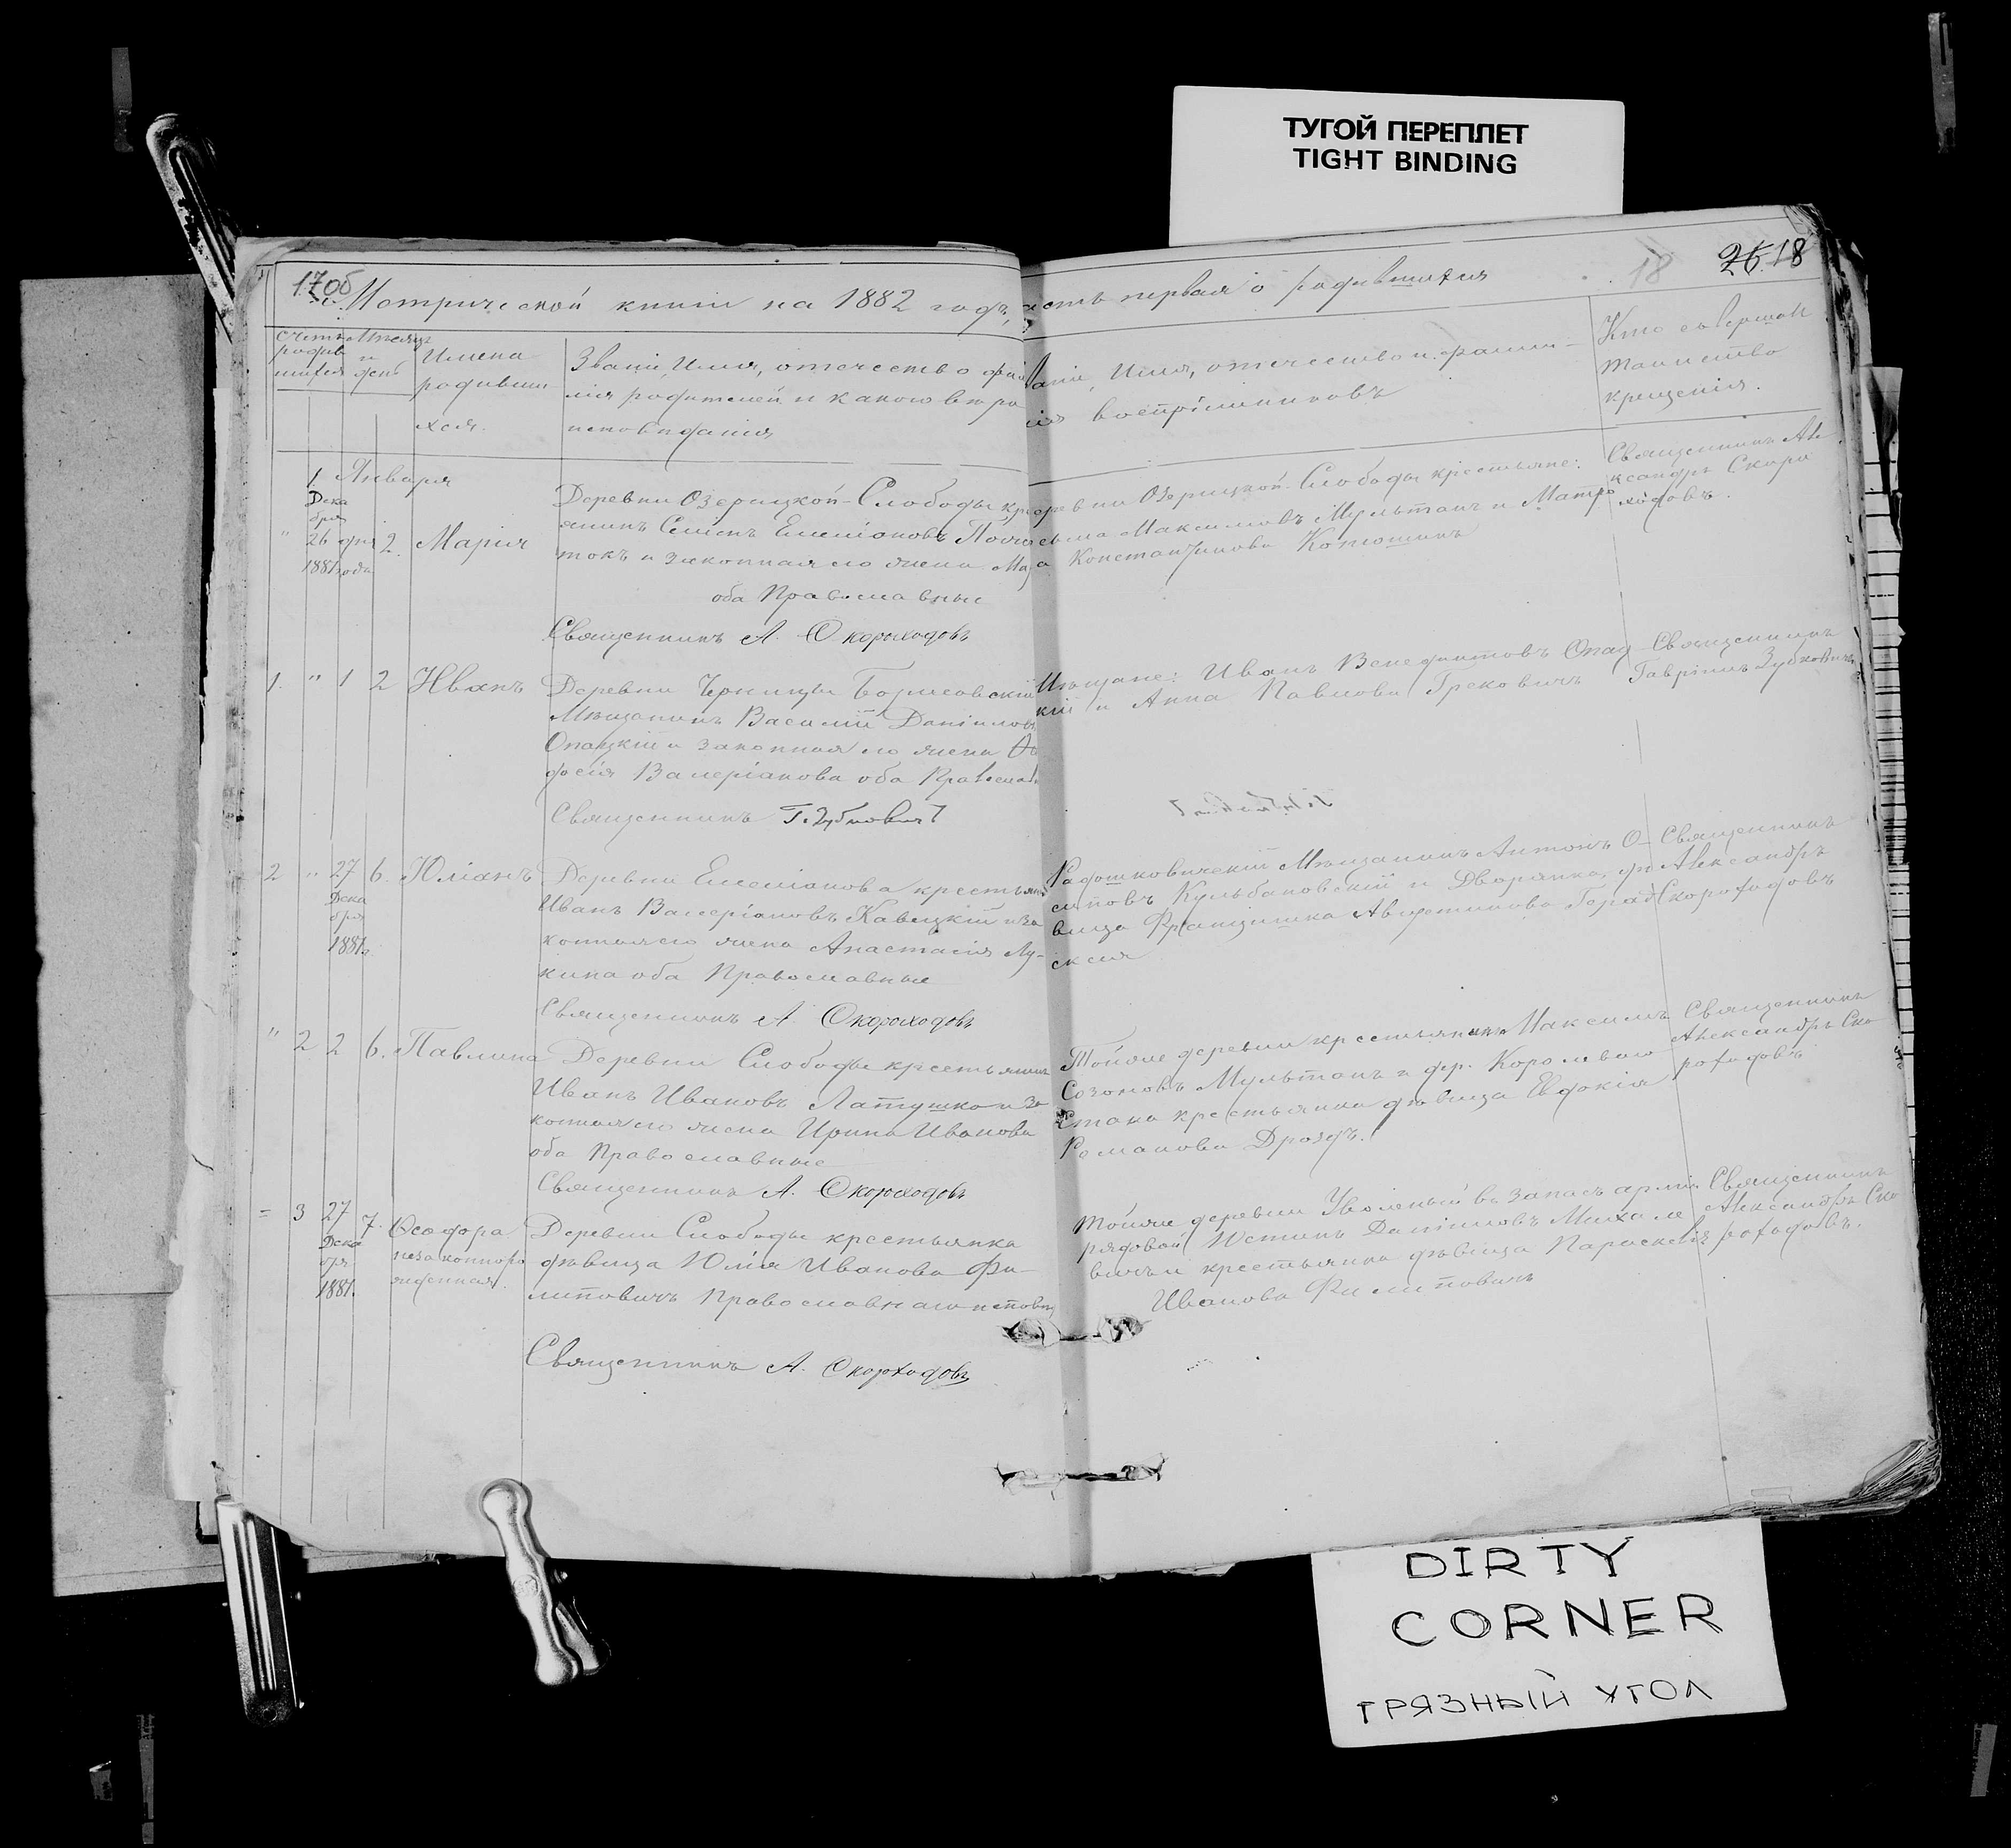 ТУГОЙ ПЕРЕПЛЕТ
TIGHT BINDING
17об
18 26 18
Метрической книги на 1882 годъ,
асть первая о родившихся
Счетъ родив шихся
Мѣсяцъ и день
Имена
родивши
хся.
Званіе, Имя, отечество и фами
лія родителей и какого вѣро
исповѣданія
Званіе, Имя, отечество и фами-
лія воспріемниковъ
Кто совершалъ
таинство
крещенія.
Января
" 1. Дека
бря
26 дня 2. Марія
1881 года
Деревни Озерицкой-Слободы кре
янинъ Семенъ Емеліановъ
токъ и законная его жена
оба Православные
Священникъ А. Скороходовъ
деревни Озерицкой-Слободы крестьяне:
Максимовъ Мультанъ и Матро
а Константинова
Священникъ Але
ксандръ Скоро
ходовъ.
1. " 1 2 Иванъ
Деревни Черницы Борисовскій
Мѣщанинъ Василій Даніиловъ
Опацкій и законная его жена
фосія Валеріанова оба Православ
Священникъ Г. Зубковичъ
Мѣщане: Иванъ Венедиктовъ Опац-
кій и Анна Павлова Грековичъ
Священникъ
Гавріилъ Зубковичъ
2 " 27 6. Юліанъ
Дека
бря
1881г.
Деревни Емеліанова крестьянинъ
Иванъ Валеріановъ Кавецкій и за
конная его жена Анастасія Лу-
кина оба Православные
Священникъ А. Скороходовъ
Радошковичскій Мѣщанинъ Антонъ О-
сиповъ Кульбановскій и Дворянка, дѣ
вица Францишка Августинова Герад
ская
Священникъ
Александръ
Скороходовъ
" 2 2 6. Павлина
Деревни Слободы крестьянинъ
Иванъ Ивановъ Латушко и за
конная его жена Ирина Иванова
оба Православные
Священникъ А. Скороходовъ
Тойже деревни крестьянинъ Максимъ
Созоновъ Мультанъ и дер. Королеваго
Стана крестьянка дѣвица Евдокія
Романова Дроздъ.
Священникъ
Александръ Ско
роходовъ
= 3 27 7. Ѳеодора
Дека
бря
1881.
незаконноро
жденная.
Деревни Слободы крестьянка
дѣвица Юлія Иванова Фи-
липовичъ Православнаго исповѣд
Священникъ А. Скороходовъ
Тойже деревни Уволеный въ запасъ арміи
рядовой Устинъ Даніиловъ Михале
вичъ и крестьянка дѣвица Параскевія
Иванова Филиповичъ
Священникъ
Александръ Ско
роходовъ.
DIRTY
CORNER
ГРЯЗНЫЙ УГОЛ